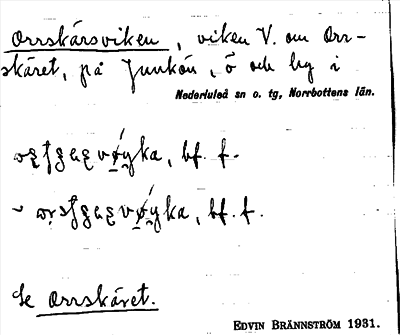 Orrskärsviken, viken V. om Orr-
skäret, på Junkön, ö och by i
Nederluleå sn o. tg, Norrbottens län.
bf. f.
~ bf. f.
Se Orrskäret.
EDVIN BRÄNNSTRÖM 1931.